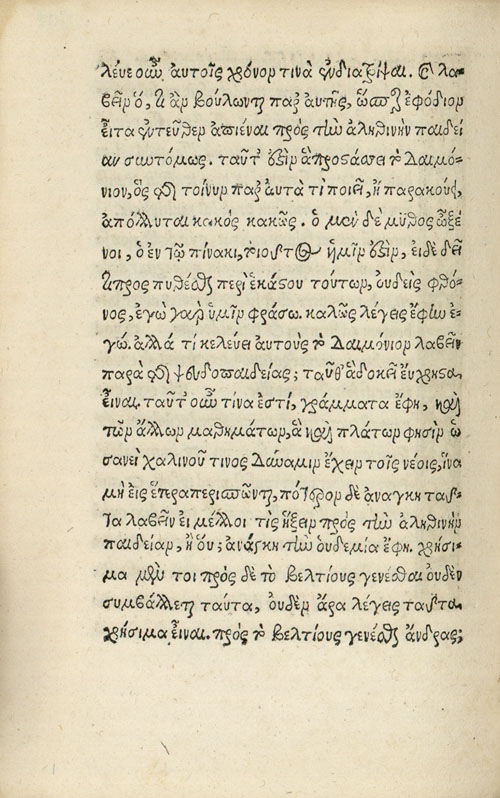 λεύει οὖν αὐτοῖς χρόνον τινὰ ἐνδιατρίψαι. καὶ λα-
βεῖν ὅ, τι ἂν βούλωνται παρ' αὐτῆς, ὥσπερ ἐφόδιον
εἶτα ἐντεῦθεν ἀπιέναι πρὸς τὴν ἀληθινὴν παιδεί
αν συντόμως. ταῦτ' ἐστὶν ἃ προστάττει τὸ Δαιμό-
νιον, ὃς τοίνυν παρ' αὐτὰ τὶ ποιεῖ, ἢ παρακούει,
ἀπόλλυται κακὸς κακῶς. ὁ μὲν δὲ μῦθος ὦ ξέ
νοι, ὁ ἐν τῷ πίνακι, τοιοῦτος ἡμῖν ἐστὶν, εἰ δὲ δεῖ
τι προς πυθέσθαι περὶ ἑκάστου τούτων, οὐδεὶς φθό-
νος, ἐγὼ γὰρ ὑμῖν φράσω. καλῶς λέγεις ἔφην ἐ-
γώ. ἀλλὰ τί κελεύει αὐτοὺς τὸ Δαιμόνιον λαβεῖν
παρὰ τῆς ψευδοπαιδείας; ταῦθ' ἃ δοκεῖ εὔχρηστα
εἶναι. ταῦτ' οὖν τίνα ἐστί, γράμματα ἔφη, καὶ
τῶν ἄλλων μαθημάτων, ἃ καὶ πλάτων φησὶν ὡ
σανεὶ χαλινοῦ τινος δύναμιν ἔχειν τοῖς νέοις, ἵνα
μὴ εἰς ἕτερα περισπῶνται, πότερον δὲ ἀνάγκη ταῦ-
τα λαβεῖν εἰ μέλλοι τὶς ἥξειν πρὸς τὴν ἀληθινὴν
παιδείαν, ἢ οὔ; ἀνάγκη τὴν οὐδεμία ἔφη. χρήσι-
μα μέν τοι πρὸς δὲ τὸ βελτίους γενέσθαι οὐδὲν
συμβάλλεται ταῦτα, οὐδὲν ἄρα λέγεις ταῦτα
χρήσιμα εἶναι. πρὸς τὸ βελτίους γενέσθαι ἄνδρας;